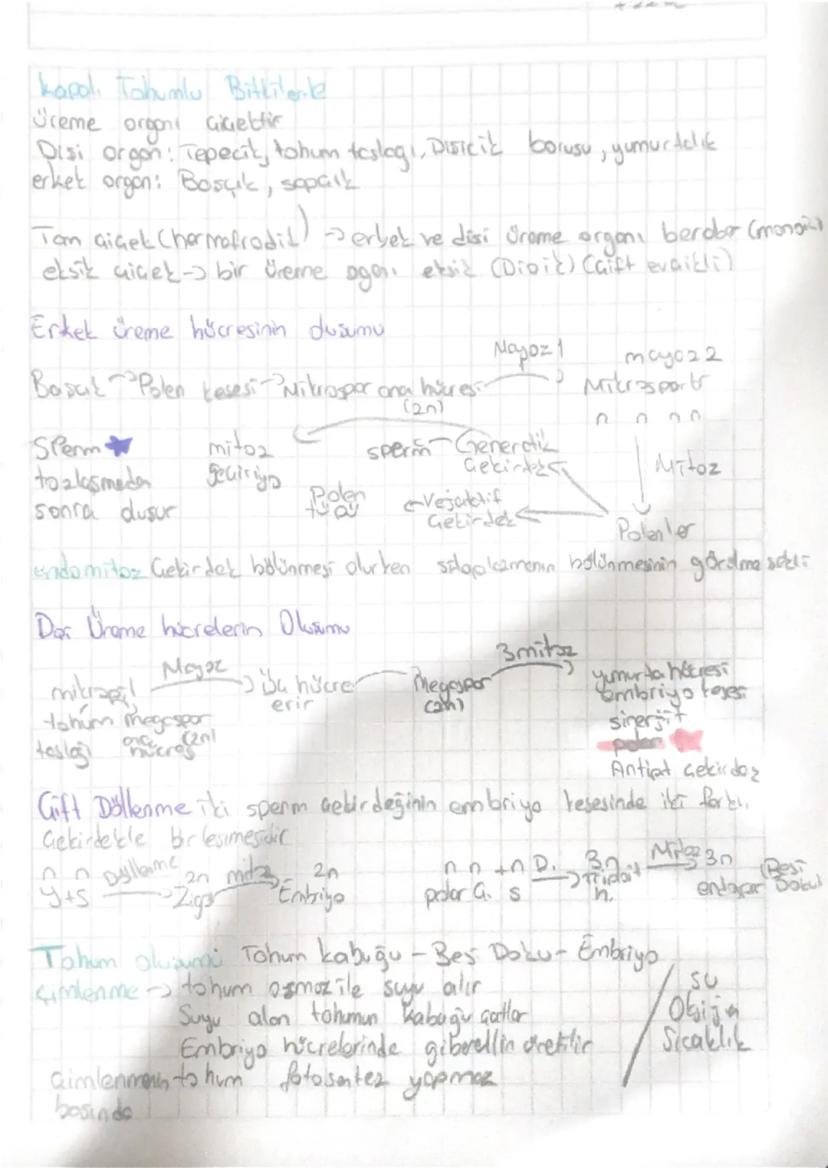 Kapalı Tohumlu Bitkilerde
Üreme organı çiçektir
Dişi organ: Tepecik, tohum taslağı, Dişicik borusu, yumurtalık
erkek organ: Başçık, sapçık
Tam çiçek (hermofrodit) → erkek ve dişi üreme organı beraber (monoik)
eksik çiçek → bir üreme oganı eksik (Dioik) (Çift evcikli)
Erkek üreme hücresinin
Mayoz 1 mayoz 2
Başçık → Polen kesesi → Mikrospor ana hücresi → Mikrosporlar
(2n) n n n n
Sperm ★ mitoz sperm Generatik
tozlaşmadan geçiriyo Çekirdek Mitoz
sonra oluşur Polen ← Vejatatif
tüpü Çekirdek Polenler
endomitoz Çekirdek bölünmesi olurken sitoplazmanın bölünmesinin görülme
Üreme hücrelerin Oluşumu
Mayoz 3 mitoz
mikropil → Üç hücre Megaspor → yumurta hücresi
erir embriyo kesesi
tohum megaspor sinerjit
taslağı ana (2n) polar
hücresi Antipot çekirdek
Çift Döllenme iki sperm çekirdeğinin embriyo kesesinde iki farklı
Çekirdekle birleşmesidir
n n Döllenme 2n mitoz 2n n n + n D. 3n Mitoz 3n (Besi
y+s → Zigot → Embriyo polar Ç. s → h. → Doku)
Tohum oluşumu Tohum kabuğu - Besi Doku - Embriyo
çimlenme → tohum osmoz ile suyu alır / su
Suyu alan tohumun kabuğu çatlar / Oksijen
Embriyo hücrelerinde giberellin üretilir / Sıcaklık
çimlenmenin tohum fotosentez yapmaz
başında